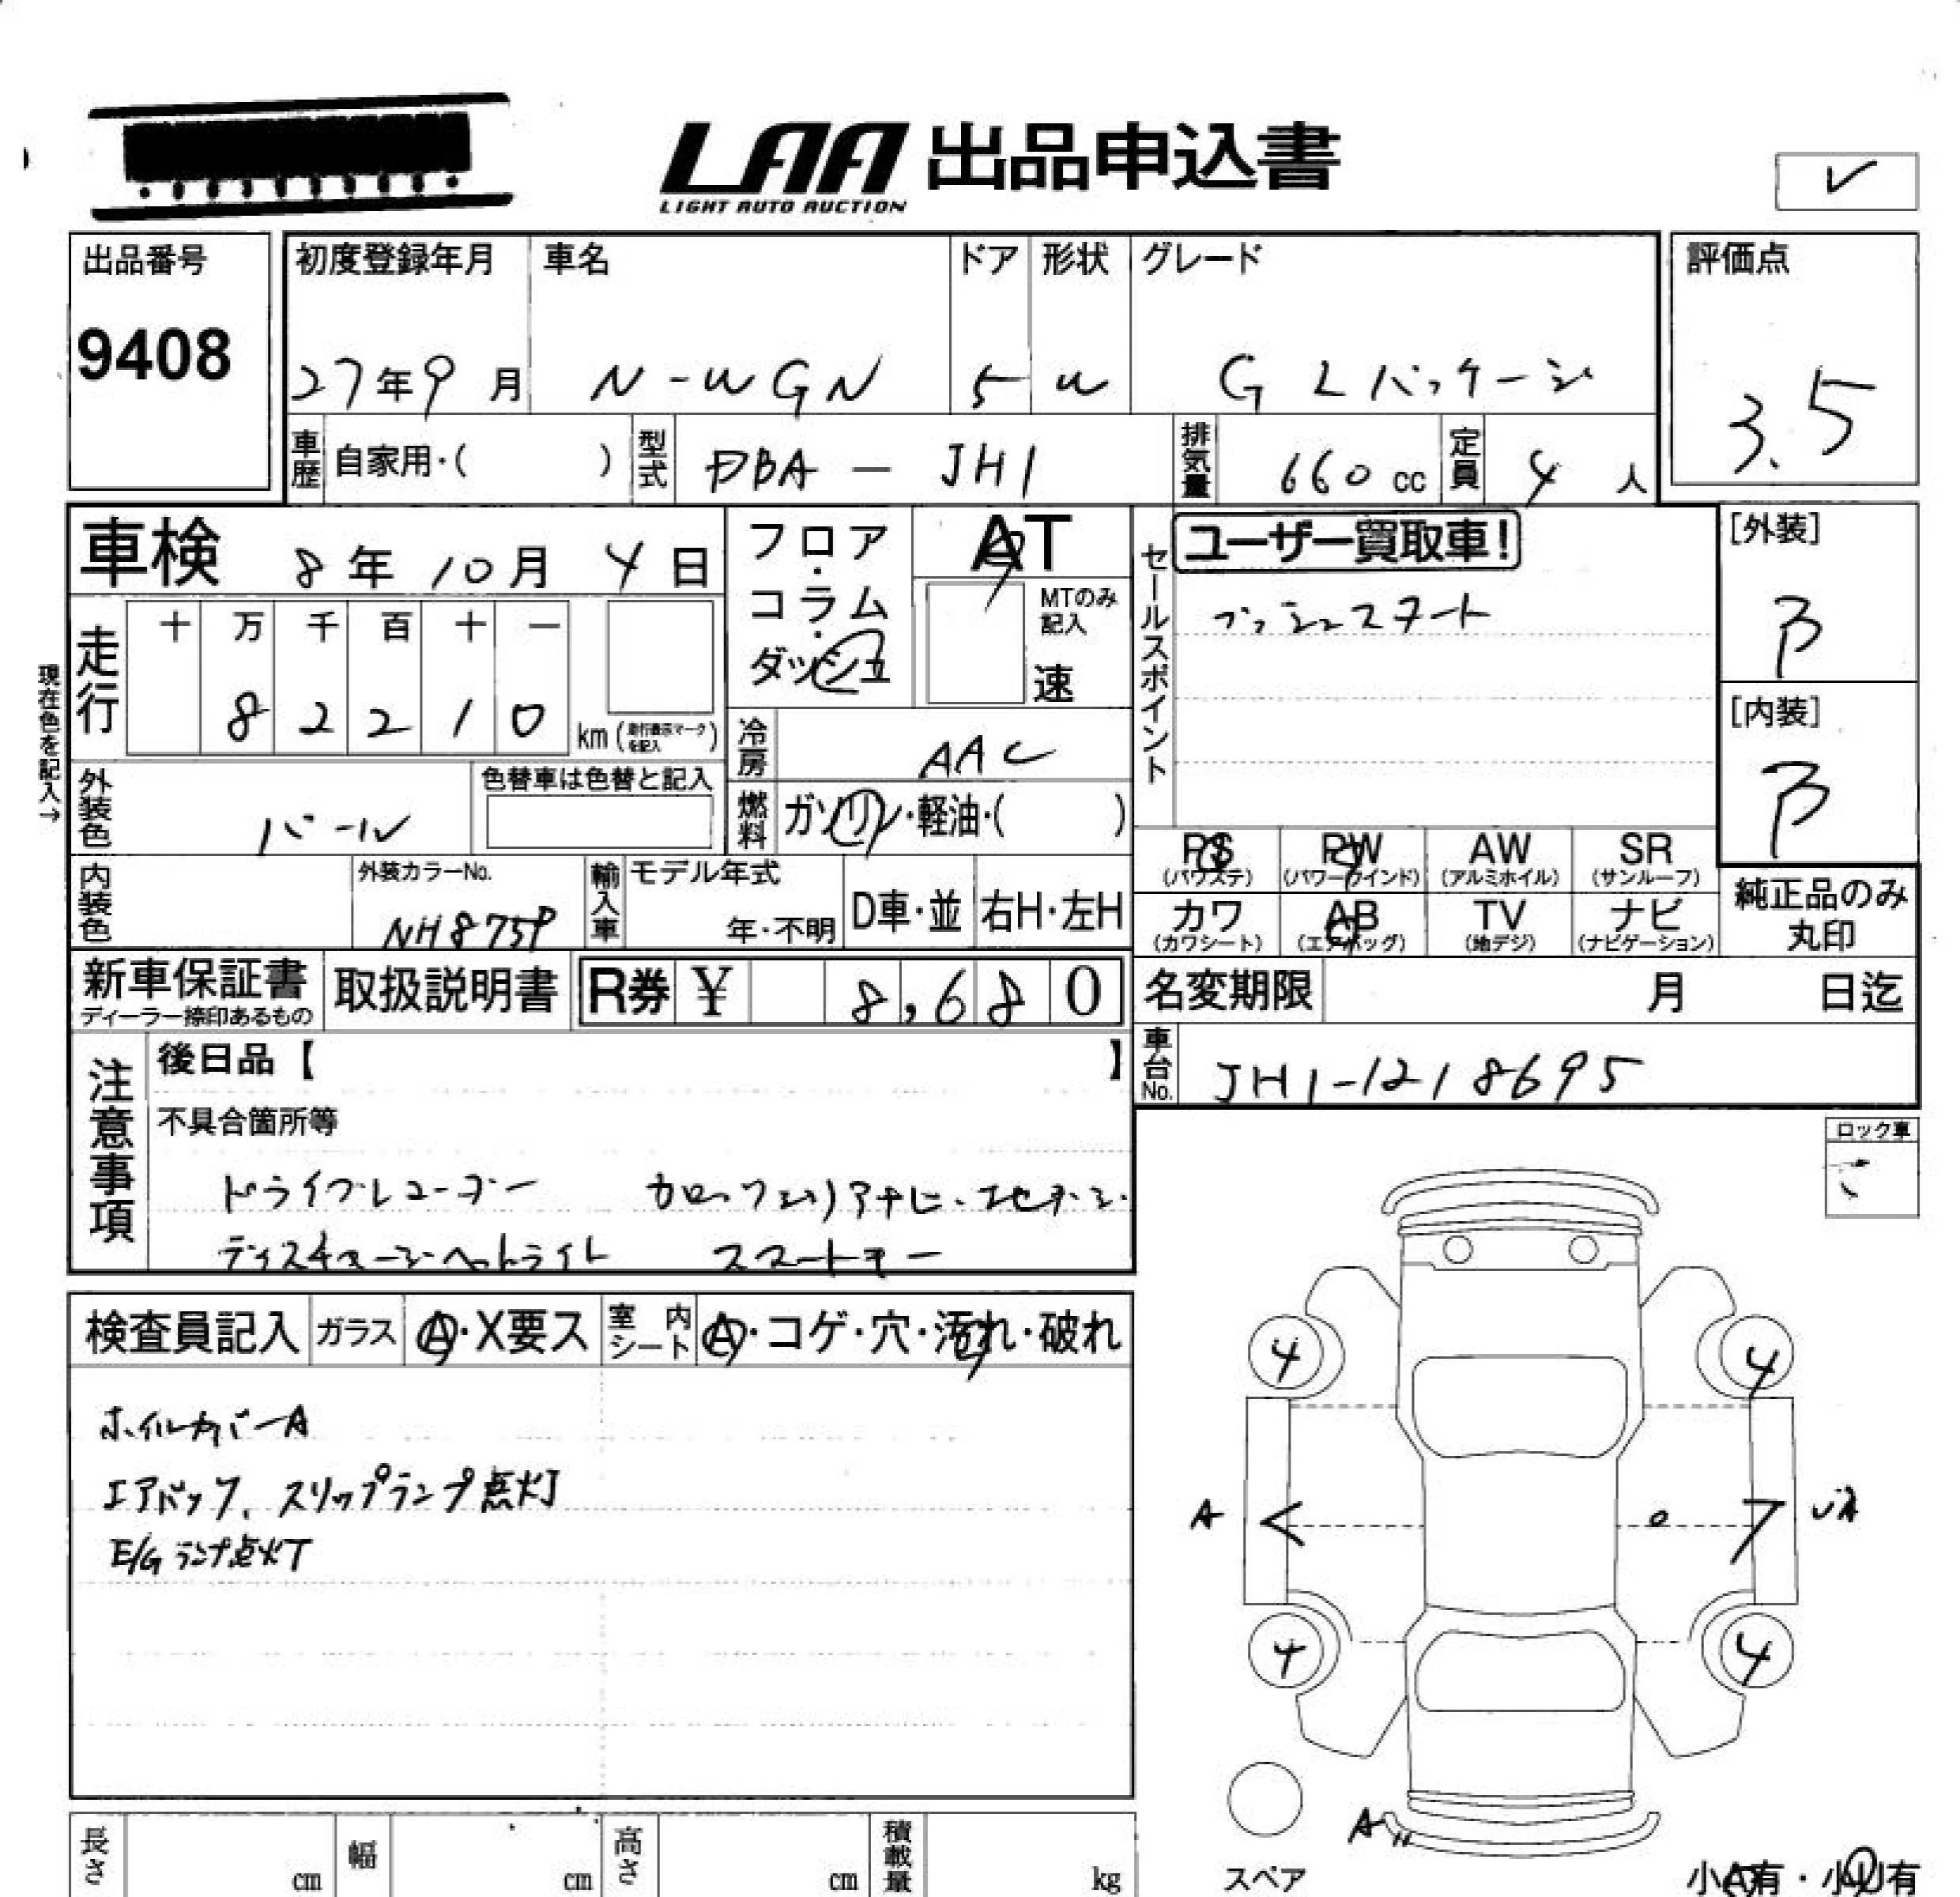 LAA 出品申込書
LIGHT AUTO AUCTION
出品番号
9408
初度登録年月
27年9月
車名
N-WGN
ドア
5
形状
W
グレード
G Lパッケージ
評価点
3.5
車歴 自家用・( )
型式 DBA-JH1
排気量 660cc
定員 4人
車検 8年10月4日
フロア・コラム・ダッシュ
AT
MTのみ記入
速
セールスポイント
ユーザー買取車!
プッシュスタート
[外装]
B
[内装]
B
現在色を記入→
走行
十 万 千 百 十 一
8 2 2 1 0 km(走行表示マークを記入)
冷房 AAC
燃料 ガソリン・軽油・( )
外装色 パール
色替車は色替と記入
内装色
外装カラーNo.
NH875P
輸入車
モデル年式
年・不明
D車・並
右H・左H
PS (パワステ)
PW (パワーウインド)
AW (アルミホイル)
SR (サンルーフ)
カワ (カワシート)
AB (エアバッグ)
TV (地デジ)
ナビ (ナビゲーション)
純正品のみ丸印
新車保証書
ディーラー捺印あるもの
取扱説明書
R券 ¥ 8,680
名変期限 月 日迄
車台No. JH1-1218695
注意事項
後日品【 】
不具合箇所等
ドライブレコーダー カロッツェリアナビ・地デジ・
ディスチャージヘッドライト スマートキー
ロック車
検査員記入
ガラス A・X要ス
室内シート A・コゲ・穴・汚れ・破れ
ホイルカバーA
エアバック、スリップランプ点灯
E/Gランプ点灯
4 4
A
4 4
A
スペア
小A有・小U有
長さ cm
幅 cm
高さ cm
積載量 kg